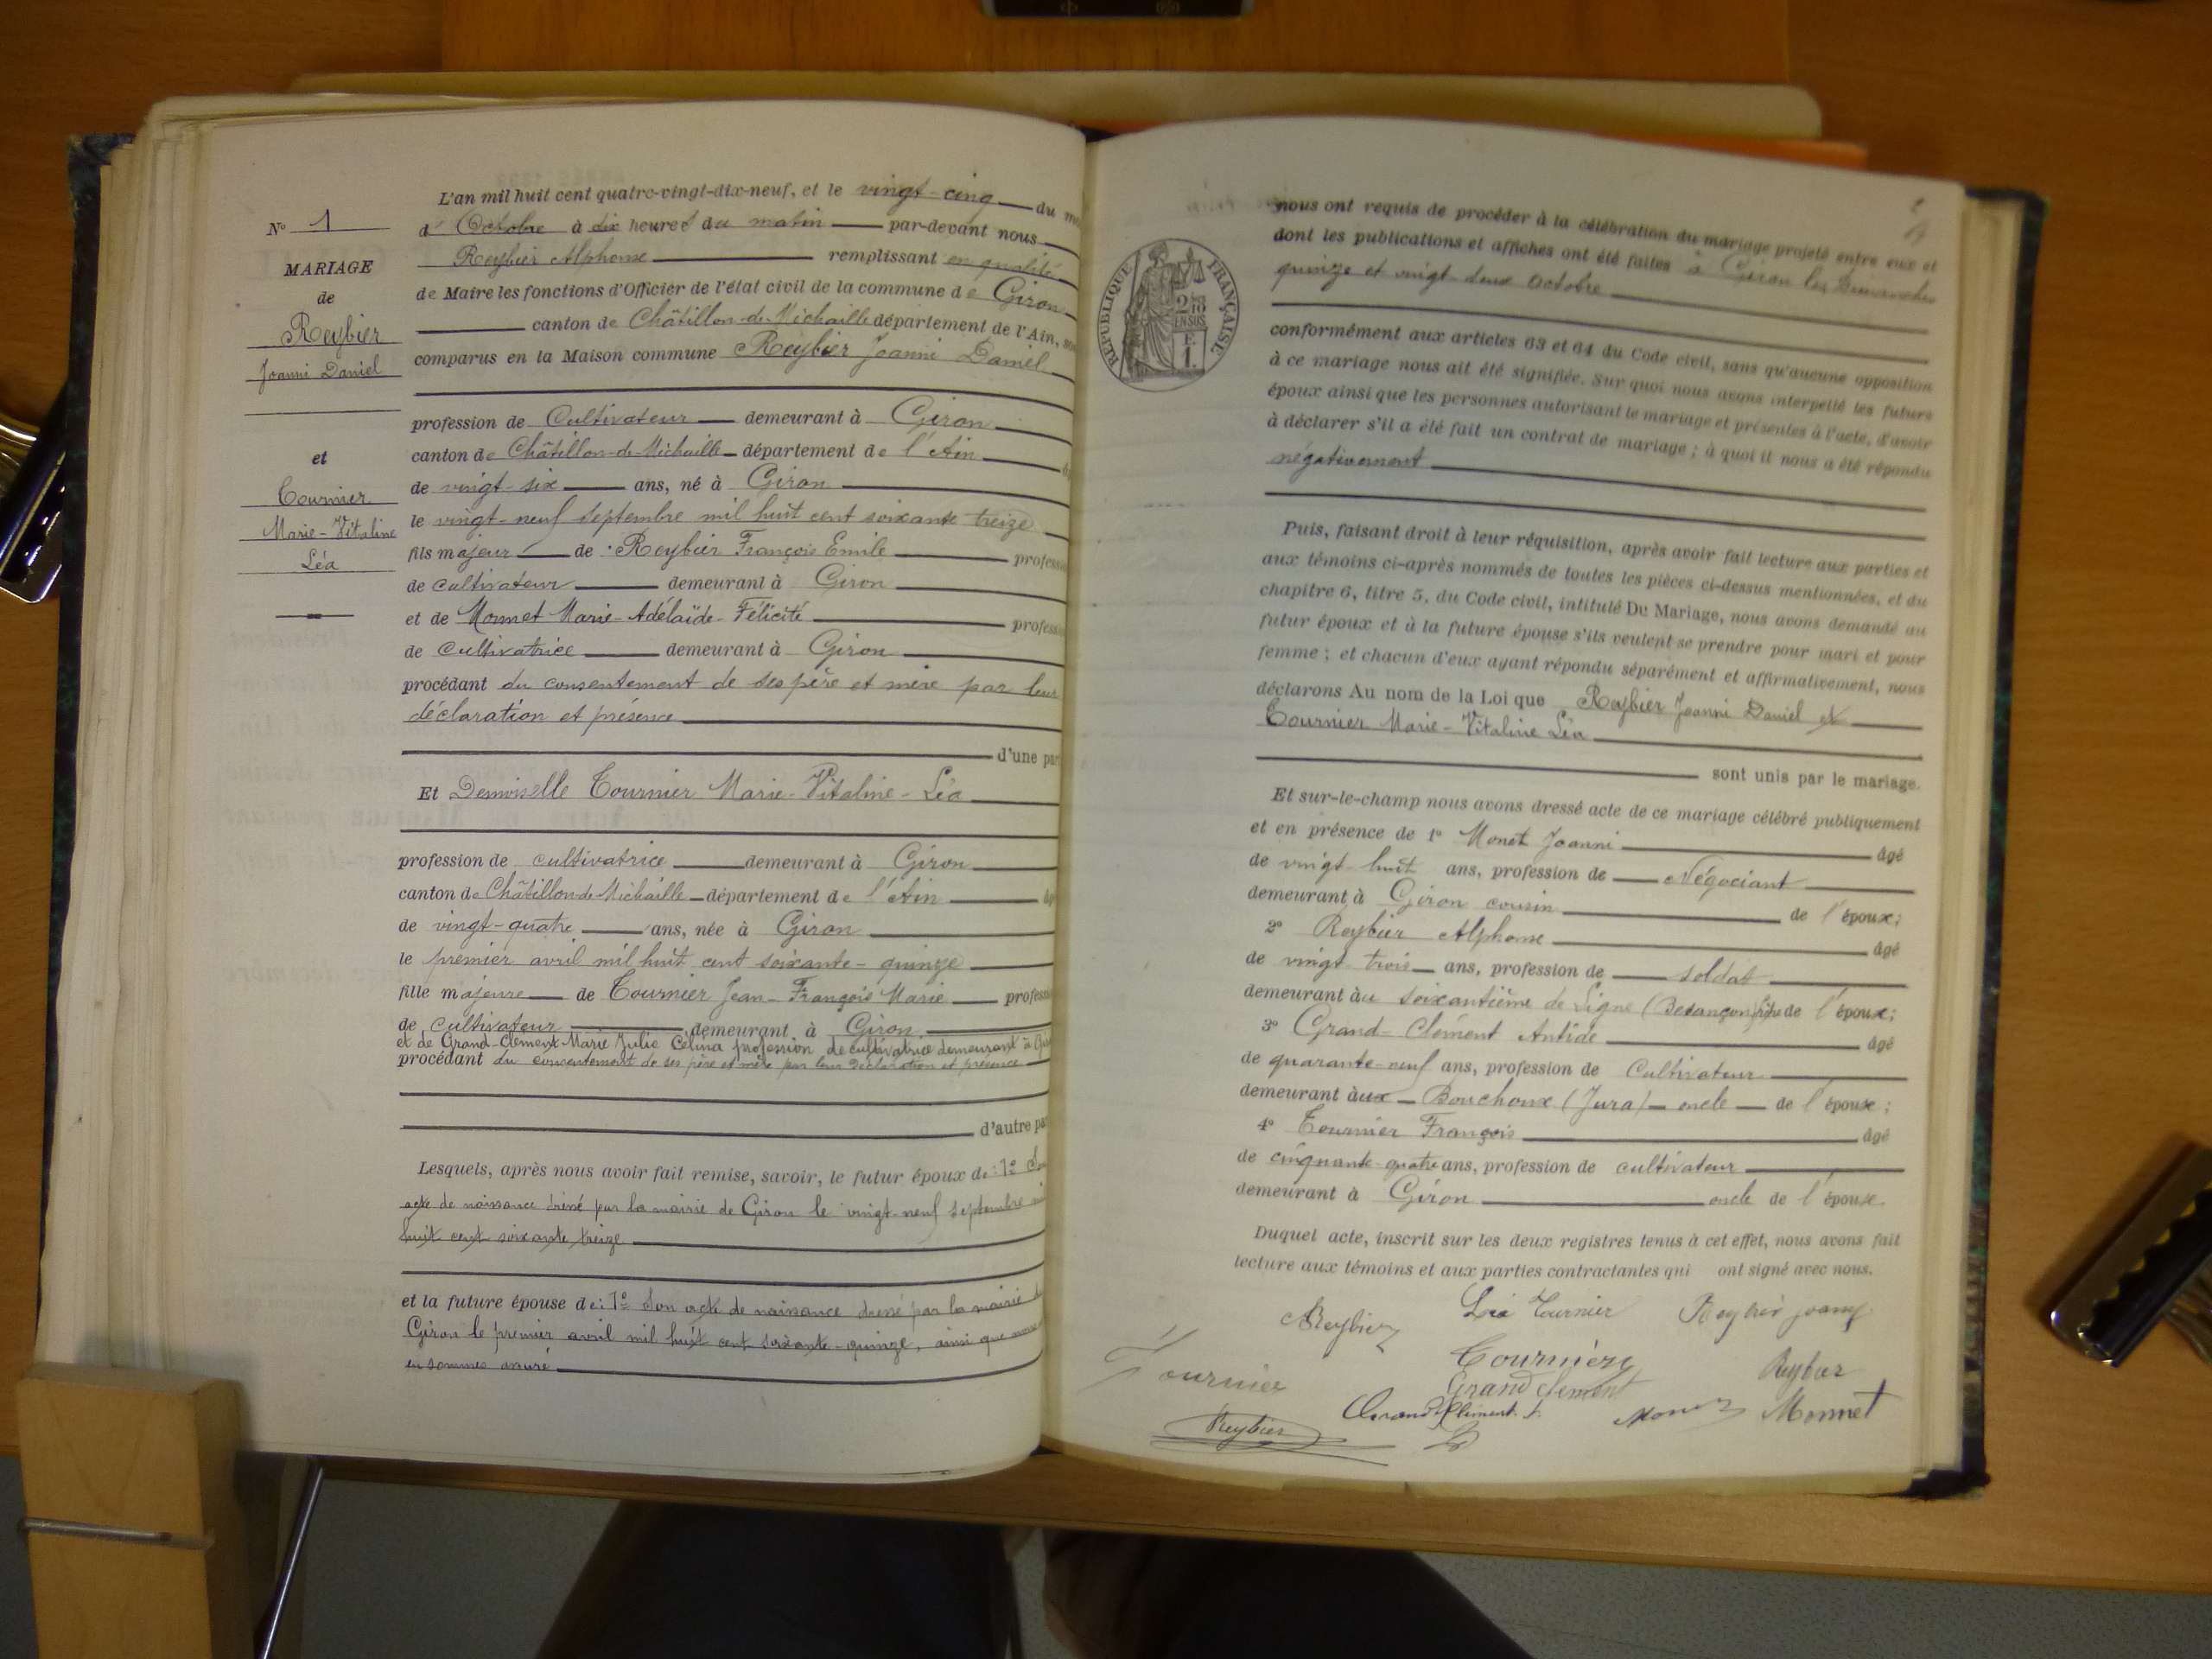 L'an mil huit cent quatre-vingt-dix-neuf, et le vingt-cinq du
N° 1
d'Octobre à dix heures du matin par-devant nous
MARIAGE
Reybier Alphonse remplissant en qualité
de
de Maire les fonctions d'Officier de l'état civil de la commune de Giron
Reybier
canton de Châtillon-de-Michaille département de l'Ain,
Joanni Daniel
comparus en la Maison commune Reybier Joanni Daniel
profession de Cultivateur demeurant à Giron
et
canton de Châtillon-de-Michaille département de l'Ain
Tournier
de vingt-six ans, né à Giron
Marie-Vitaline
le vingt-neuf septembre mil huit cent soixante treize
Léa
fils majeur de Reybier François Emile profess
de cultivateur demeurant à Giron
et de Monnet Marie-Adélaïde-Félicité profess
de Cultivatrice demeurant à Giron
procédant du consentement de ses père et mère par leur
déclaration et présence
d'une par
Et Demoiselle Tournier Marie-Vitaline-Léa
profession de cultivatrice demeurant à Giron
canton de Châtillon-de-Michaille département de l'Ain
de vingt-quatre ans, née à Giron
le premier avril mil huit cent soixante-quinze
fille majeure de Tournier Jean-François Marie profess
de cultivateur demeurant à Giron
et de Grand-Clément Marie Julie Célina profession de cultivatrice demeurant à
procédant du consentement de ses père et mère par leur déclaration et présence
d'autre pa
Lesquels, après nous avoir fait remise, savoir, le futur époux de : 1° Son
acte de naissance dressé par la mairie de Giron le vingt-neuf septembre mil
huit cent soixante treize
et la future épouse de : 1° Son acte de naissance dressé par la mairie de
Giron le premier avril mil huit cent soixante-quinze, ainsi que nous nous
en sommes assuré
2
nous ont requis de procéder à la célébration du mariage projeté entre eux et
dont les publications et affiches ont été faites à Giron les Dimanches
quinze et vingt-deux Octobre
RÉPUBLIQUE FRANÇAISE
2/10 EN SUS
F.
1.
conformément aux articles 63 et 64 du Code civil, sans qu'aucune opposition
à ce mariage nous ait été signifiée. Sur quoi nous avons interpellé les futurs
époux ainsi que les personnes autorisant le mariage et présentes à l'acte, d'avoir
à déclarer s'il a été fait un contrat de mariage ; à quoi il nous a été répondu
négativement
Puis, faisant droit à leur réquisition, après avoir fait lecture aux parties et
aux témoins ci-après nommés de toutes les pièces ci-dessus mentionnées, et du
chapitre 6, titre 5, du Code civil, intitulé Du Mariage, nous avons demandé au
futur époux et à la future épouse s'ils veulent se prendre pour mari et pour
femme ; et chacun d'eux ayant répondu séparément et affirmativement, nous
déclarons Au nom de la Loi que Reybier Joanni Daniel et
Tournier Marie-Vitaline Léa
sont unis par le mariage.
Et sur-le-champ nous avons dressé acte de ce mariage célébré publiquement
et en présence de 1° Monet Joanni âgé
de vingt-huit ans, profession de Négociant
demeurant à Giron cousin de l'époux ;
2° Reybier Alphonse âgé
de vingt trois ans, profession de soldat
demeurant au soixantième de Ligne (Besançon) frère de l'époux ;
3° Grand-Clément Antide âgé
de quarante-neuf ans, profession de Cultivateur
demeurant aux Bouchoux (Jura) oncle de l'épouse ;
4° Tournier François âgé
de cinquante-quatre ans, profession de cultivateur
demeurant à Giron oncle de l'épouse.
Duquel acte, inscrit sur les deux registres tenus à cet effet, nous avons fait
lecture aux témoins et aux parties contractantes qui ont signé avec nous.
Reybier Léa Tournier Reybier Joany
Tournier Tournier Reybier
Grand clement
Grand Clément Monet Monnet
Reybier